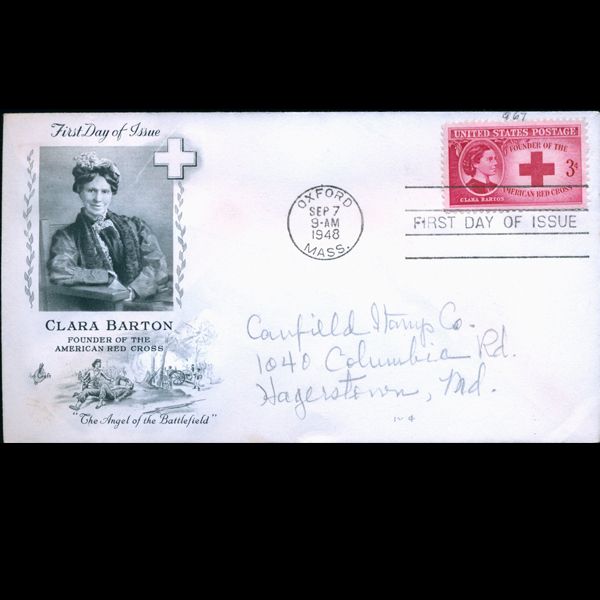 967
First Day of Issue
UNITED STATES POSTAGE
FOUNDER OF THE
3¢
AMERICAN RED CROSS
CLARA BARTON
OXFORD
SEP 7
9-AM
1948
MASS.
FIRST DAY OF ISSUE
CLARA BARTON
FOUNDER OF THE
AMERICAN RED CROSS
"The Angel of the Battlefield"
Canfield Stamp Co.
1040 Columbia Rd.
Hagerstown, Md.